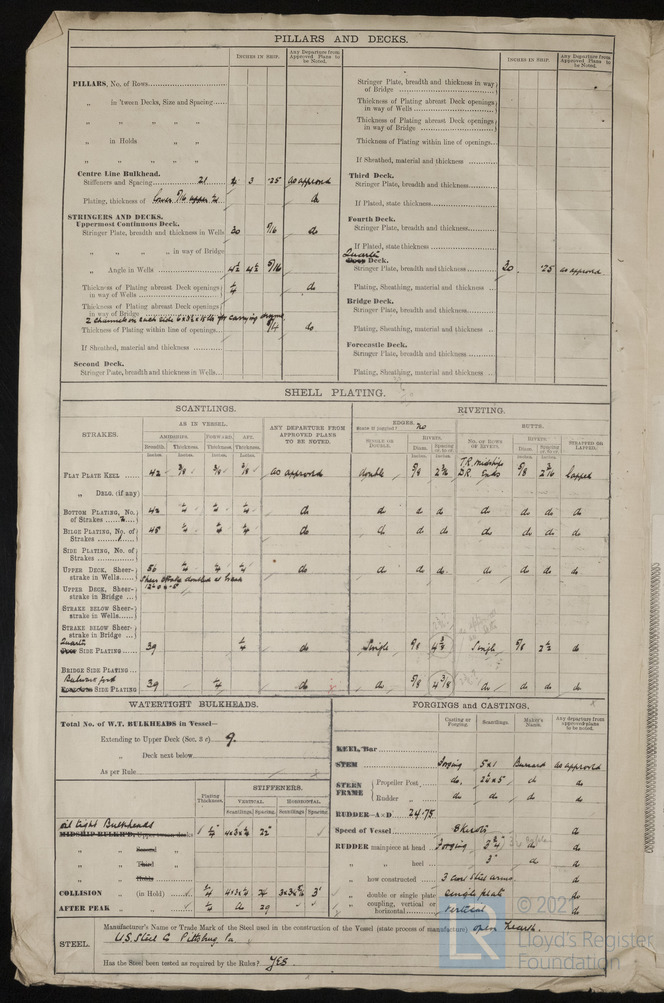 PILLARS AND DECKS.
INCHES IN SHIP.
Any Departure from Approved Plans to be Noted.
INCHES IN SHIP.
Any Departure from Approved Plans to be Noted.
PILLARS, No. of Rows
„ in 'tween Decks, Size and Spacing
„ „ „ „
„ in Holds „
„ „ „ „
Centre Line Bulkhead.
Stiffeners and Spacing 21 3 .25 as approved
Plating, thickness of lower 5/16 upper do
STRINGERS AND DECKS.
Uppermost Continuous Deck.
Stringer Plate, breadth and thickness in Wells 30 5/16 do
„ „ „ „ in way of Bridge
„ Angle in Wells 4½ 4½ 5/16
Thickness of Plating abreast Deck openings in way of Wells ¼ do
Thickness of Plating abreast Deck openings in way of Bridge
2 channels on each side for carrying
Thickness of Plating within line of openings do
If Sheathed, material and thickness
Second Deck.
Stringer Plate, breadth and thickness in Wells
Stringer Plate, breadth and thickness in way of Bridge
Thickness of Plating abreast Deck openings in way of Wells
Thickness of Plating abreast Deck openings in way of Bridge
Thickness of Plating within line of openings
If Sheathed, material and thickness
Third Deck.
Stringer Plate, breadth and thickness
If Plated, state thickness
Fourth Deck.
Stringer Plate, breadth and thickness
If Plated, state thickness
Quarter Deck.
Stringer Plate, breadth and thickness 30 .25 as approved
Plating, Sheathing, material and thickness
Bridge Deck.
Stringer Plate, breadth and thickness
Plating, Sheathing, material and thickness
Forecastle Deck.
Stringer Plate, breadth and thickness
Plating, Sheathing, material and thickness
SHELL PLATING.
SCANTLINGS.
RIVETING.
STRAKES.
AS IN VESSEL.
AMIDSHIPS. FORWARD. AFT.
Breadth. Thickness. Thickness. Thickness.
ANY DEPARTURE FROM APPROVED PLANS TO BE NOTED.
EDGES.
State if joggled? no
SINGLE OR DOUBLE.
RIVETS.
Diam. Spacing cr. to cr.
BUTTS.
NO. OF ROWS OF RIVETS.
RIVETS.
Diam. Spacing cr. to cr.
STRAPPED OR LAPPED.
FLAT PLATE KEEL 42 3/8 3/8 3/8 as approved double 5/8 T.R. midships D.R. Ends 5/8 Lapped
„ DBLG. (if any)
BOTTOM PLATING, No. of Strakes 2 42 ¼ ¼ ¼ do do do do do do do do
BILGE PLATING, No. of Strakes 1 45 ¼ ¼ ¼ do do do do do do do do
SIDE PLATING, No. of Strakes
UPPER DECK, Sheer-strake in Wells 56 ¼ ¼ ¼ do do do do do do do do
Sheer Strake doubled at break
UPPER DECK, Sheer-strake in Bridge
STRAKE BELOW Sheer-strake in Wells
STRAKE BELOW Sheer-strake in Bridge
Quarter SIDE PLATING 39 ¼ do Single 5/8 4 3/8 Single 5/8 2½ do
BRIDGE SIDE PLATING
Bulwark ford SIDE PLATING 39 ¼ do do 5/8 4 3/8 do do do do
WATERTIGHT BULKHEADS.
Total No. of W.T. BULKHEADS in Vessel—
Extending to Upper Deck (Sec. 3 c) 9.
„ Deck next below
As per Rule
Plating Thickness.
STIFFENERS.
VERTICAL. HORIZONTAL.
Scantlings. Spacing. Scantlings. Spacing
oil tight Bulkheads
MIDSHIP BULKH'D, Upper tween decks 4x3x¼ 22"
„ Second „
„ Third „
„ Holds „
COLLISION „ (in Hold) ¼ 4x3x¼ 24 3'
AFTER PEAK „ „ ¼ do 29 do do
FORGINGS and CASTINGS.
Casting or Forging. Scantlings. Maker's Name. Any departure from approved plans to be noted.
KEEL, Bar
STEM Forging 5x1 as approved
STERN FRAME
Propeller Post do. do do
Rudder „ do do do do
RUDDER—A×D 24.75
Speed of Vessel 8 knots do
RUDDER mainpiece at head Forging do do
„ „ heel 3" do do
„ how constructed do
„ double or single plate single plate do
„ coupling, vertical or horizontal vertical do
STEEL.
Manufacturer's Name or Trade Mark of the Steel used in the construction of the Vessel (state process of manufacture) open hearth.
U.S. Steel Co Pittsburg Pa.
Has the Steel been tested as required by the Rules? YES.
LR
© 2021
Lloyd's Register
Foundation